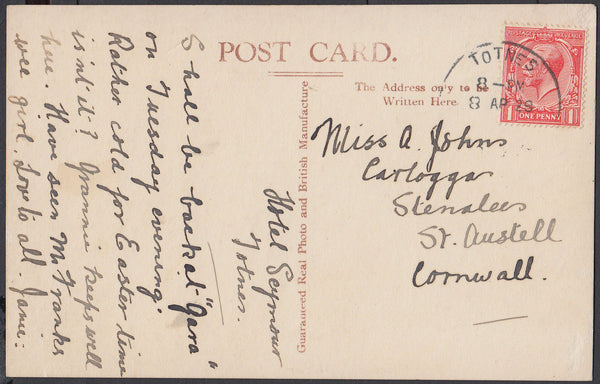 POST CARD.
The Address only to be
Written Here.
TOTNES
8 - PM
8 AP 29
POSTAGE REVENUE
1 ONE PENNY 1
Miss A. Johns
Carloggas
Stenalees
St. Austell
Cornwall.
Guaranteed Real Photo and British Manufacture
Hotel Seymour
Totnes.
Shall be back at "Gara"
on Tuesday evening.
Rather cold for Easter time
isn't it? Grannie keeps well
here. Have seen Mr Franks
wee girl. Love to all. Janie.